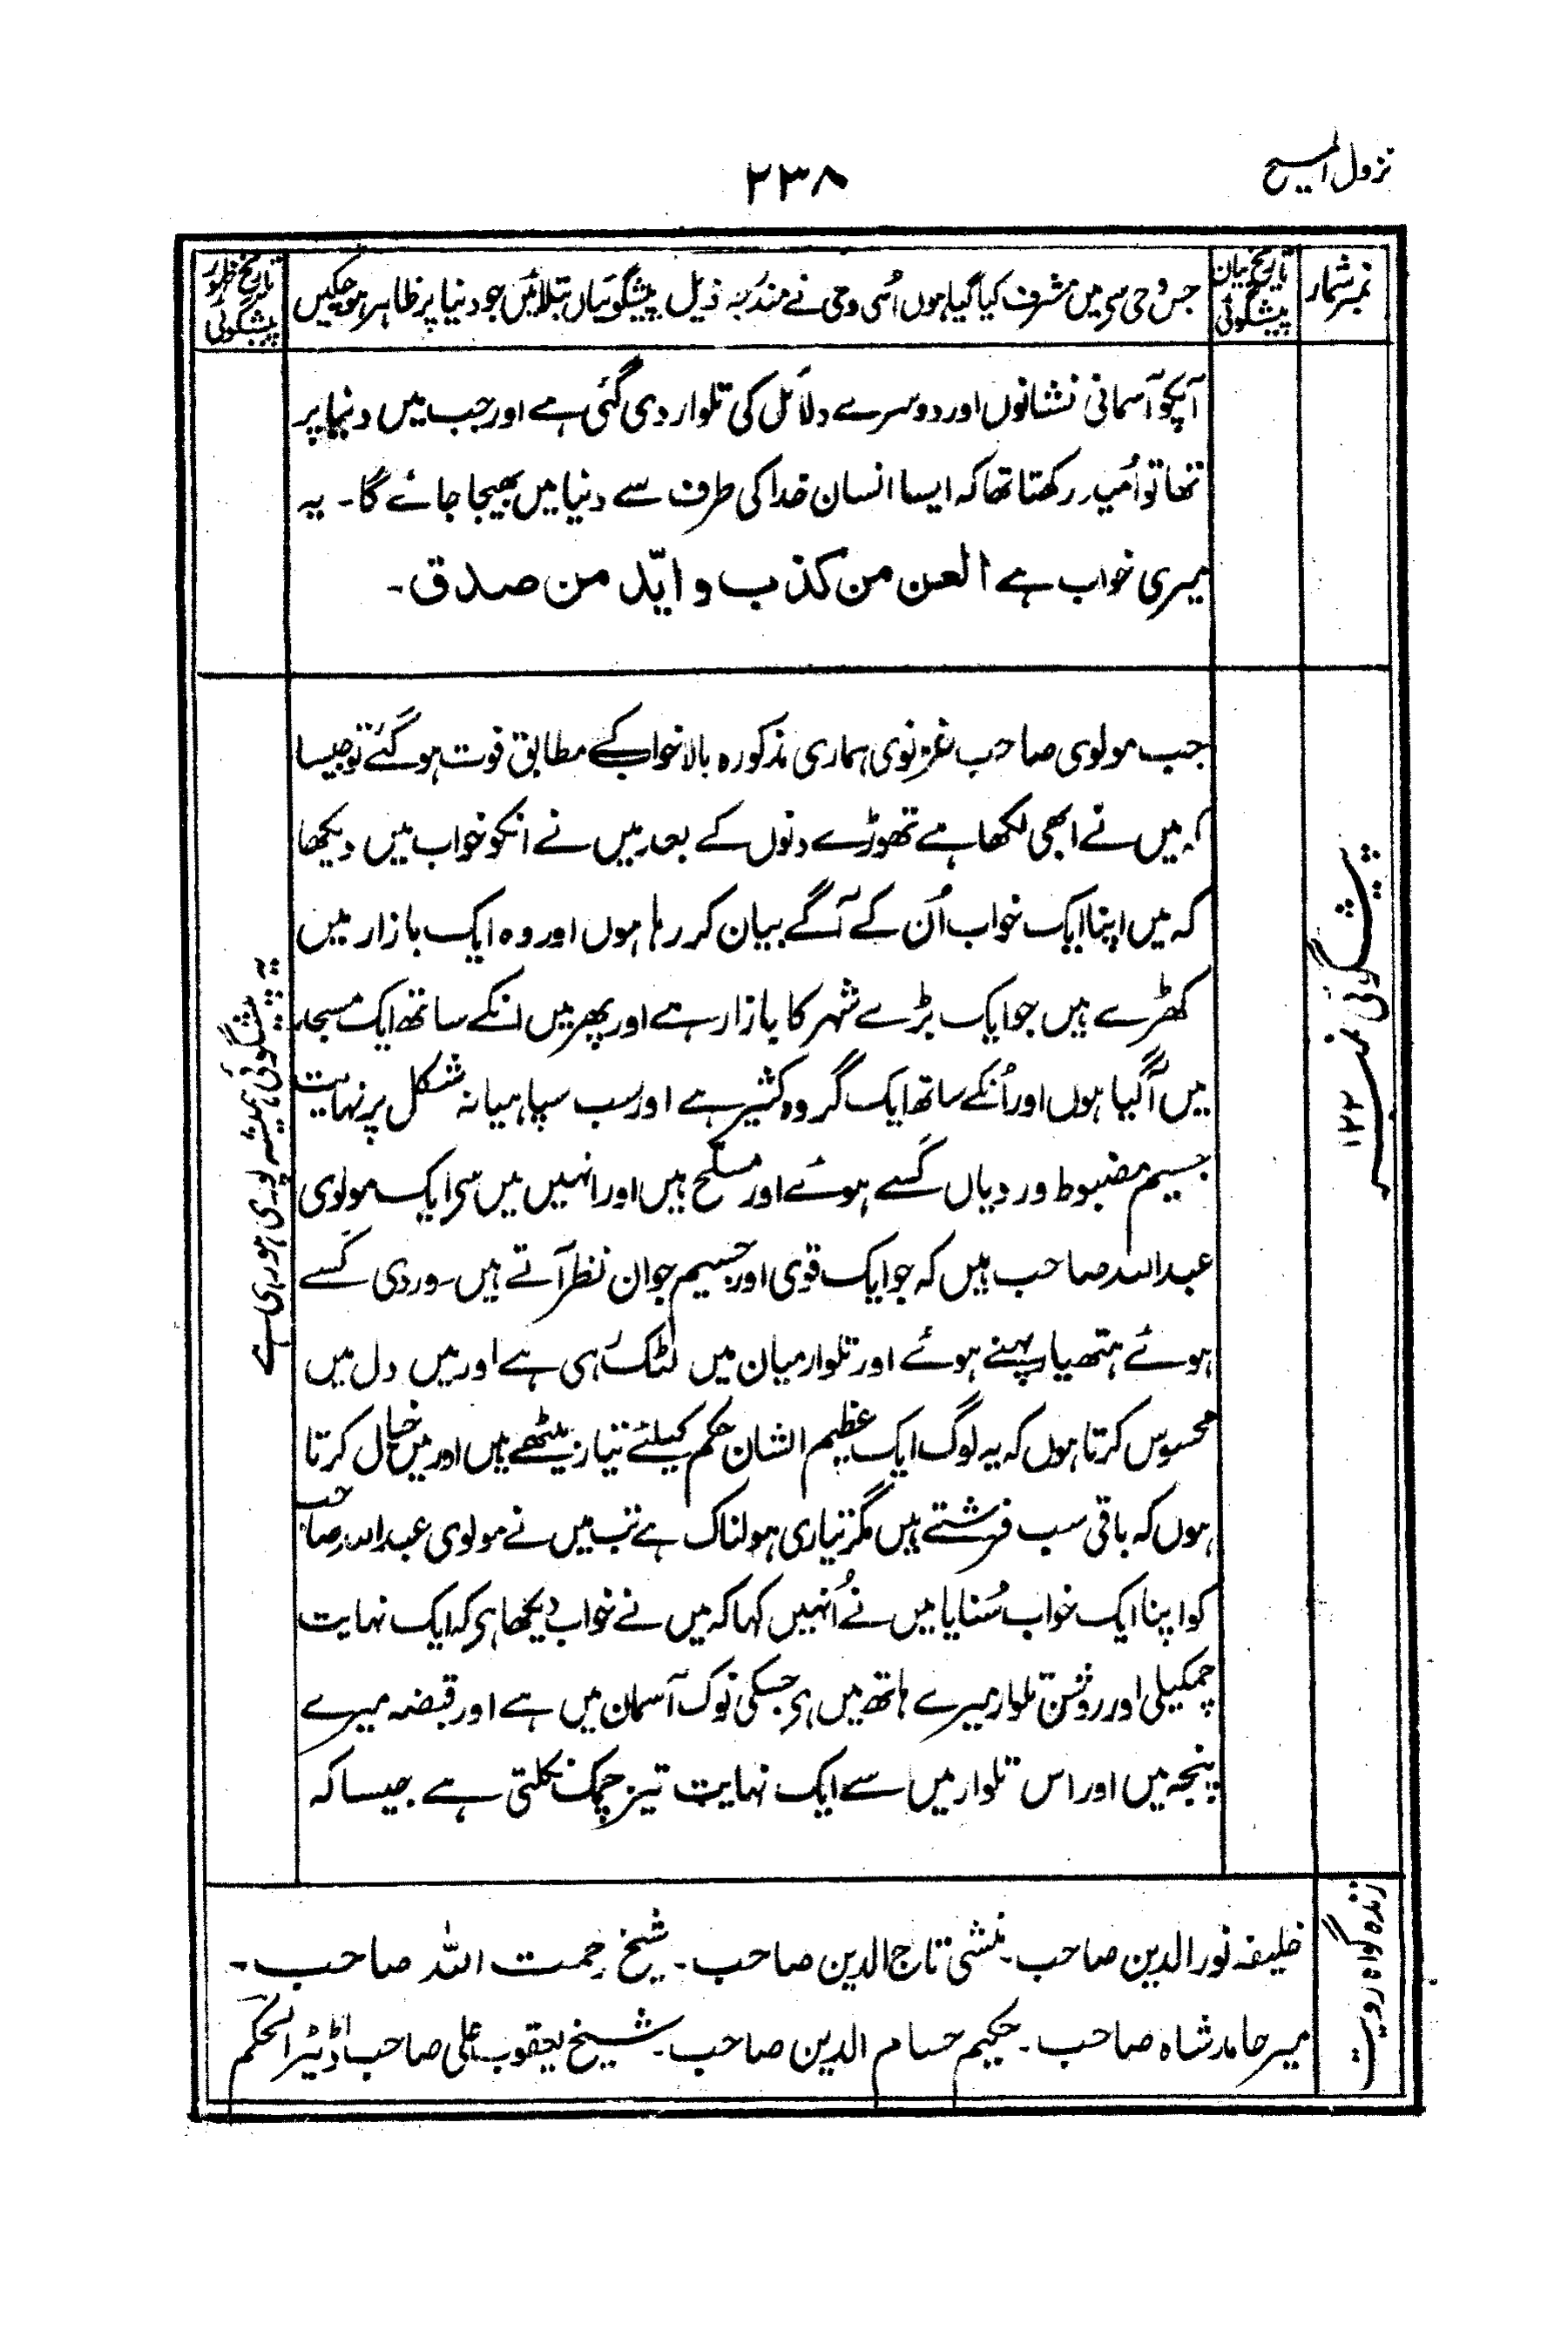 نزول المسیح
۲۳۸
نمبر شمار
تاریخ بیان پیشگوئی
جس وحی سے میں مشرف کیا گیا ہوں اُسی وحی نے مندرجہ ذیل پیشگوئیاں بتلائیں جو دنیا پر ظاہر ہو چکیں
تاریخ ظہور پیشگوئی
آپکو آسمانی نشانوں اور دوسرے دلائل کی تلوار دی گئی ہے اور جب میں دنیا پر
تھا تو اُمید رکھتا تھا کہ ایسا انسان خدا کی طرف سے دنیا میں بھیجا جائے گا۔ یہ
میری خواب ہے العن من کذب و ایّد من صدق۔
پیشگوئی نمبر ۱۲۲
جب مولوی صاحب غزنوی ہماری مذکورہ بالا خواب کے مطابق فوت ہو گئے تو جیسا
کہ میں نے ابھی لکھا ہے تھوڑے دنوں کے بعد میں نے انکو خواب میں دیکھا
کہ میں اپنا ایک خواب اُن کے آگے بیان کر رہا ہوں اور وہ ایک بازار میں
کھڑے ہیں جو ایک بڑے شہر کا بازار ہے اور پھر میں انکے ساتھ ایک مسجد
میں آگیا ہوں اور اُنکے ساتھ ایک گروہ کثیر ہے اور سب سپاہیانہ شکل پر نہایت
جسیم مضبوط وردیاں کَسے ہوئے اور مسلّح ہیں اور انہیں میں سے ایک مولوی
عبداللہ صاحب ہیں کہ جو ایک قوی اور جسیم جوان نظر آتے ہیں۔ وردی کَسے
ہوئے ہتھیار پہنے ہوئے اور تلوار میان میں لٹک رہی ہے اور میں دل میں
محسوس کرتا ہوں کہ یہ لوگ ایک عظیم الشان حکم کیلئے تیار بیٹھے ہیں اور میں خیال کرتا
ہوں کہ باقی سب فرشتے ہیں مگر تیاری ہولناک ہے تب میں نے مولوی عبداللہ صاحب
کو اپنا ایک خواب سُنایا میں نے اُنہیں کہا کہ میں نے خواب دیکھا ہے کہ ایک نہایت
چمکیلی اور روشن تلوار میرے ہاتھ میں ہے جسکی نوک آسمان میں ہے اور قبضہ میرے
پنجہ میں اور اس تلوار میں سے ایک نہایت تیز چمک نکلتی ہے جیسا کہ
یہ پیشگوئی ہمیشہ پوری ہو رہی ہے
زندہ گواہ رویت
خلیفہ نور الدین صاحب۔ منشی تاج الدین صاحب۔ شیخ رحمت اللہ صاحب۔
میر حامد شاہ صاحب۔ حکیم حسام الدین صاحب۔ شیخ یعقوب علی صاحب اڈیٹر الحکم